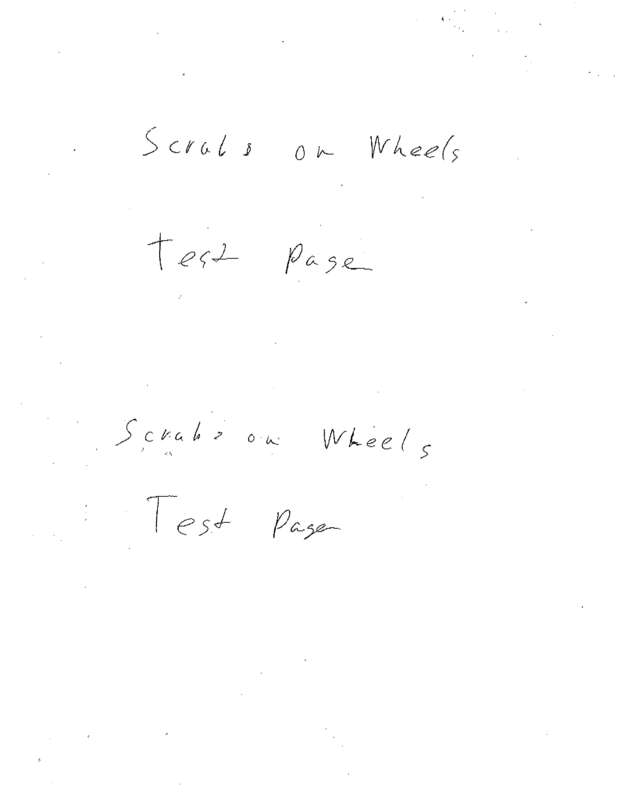 Scrubs on Wheels
Test Page
Scrubs on Wheels
Test Page